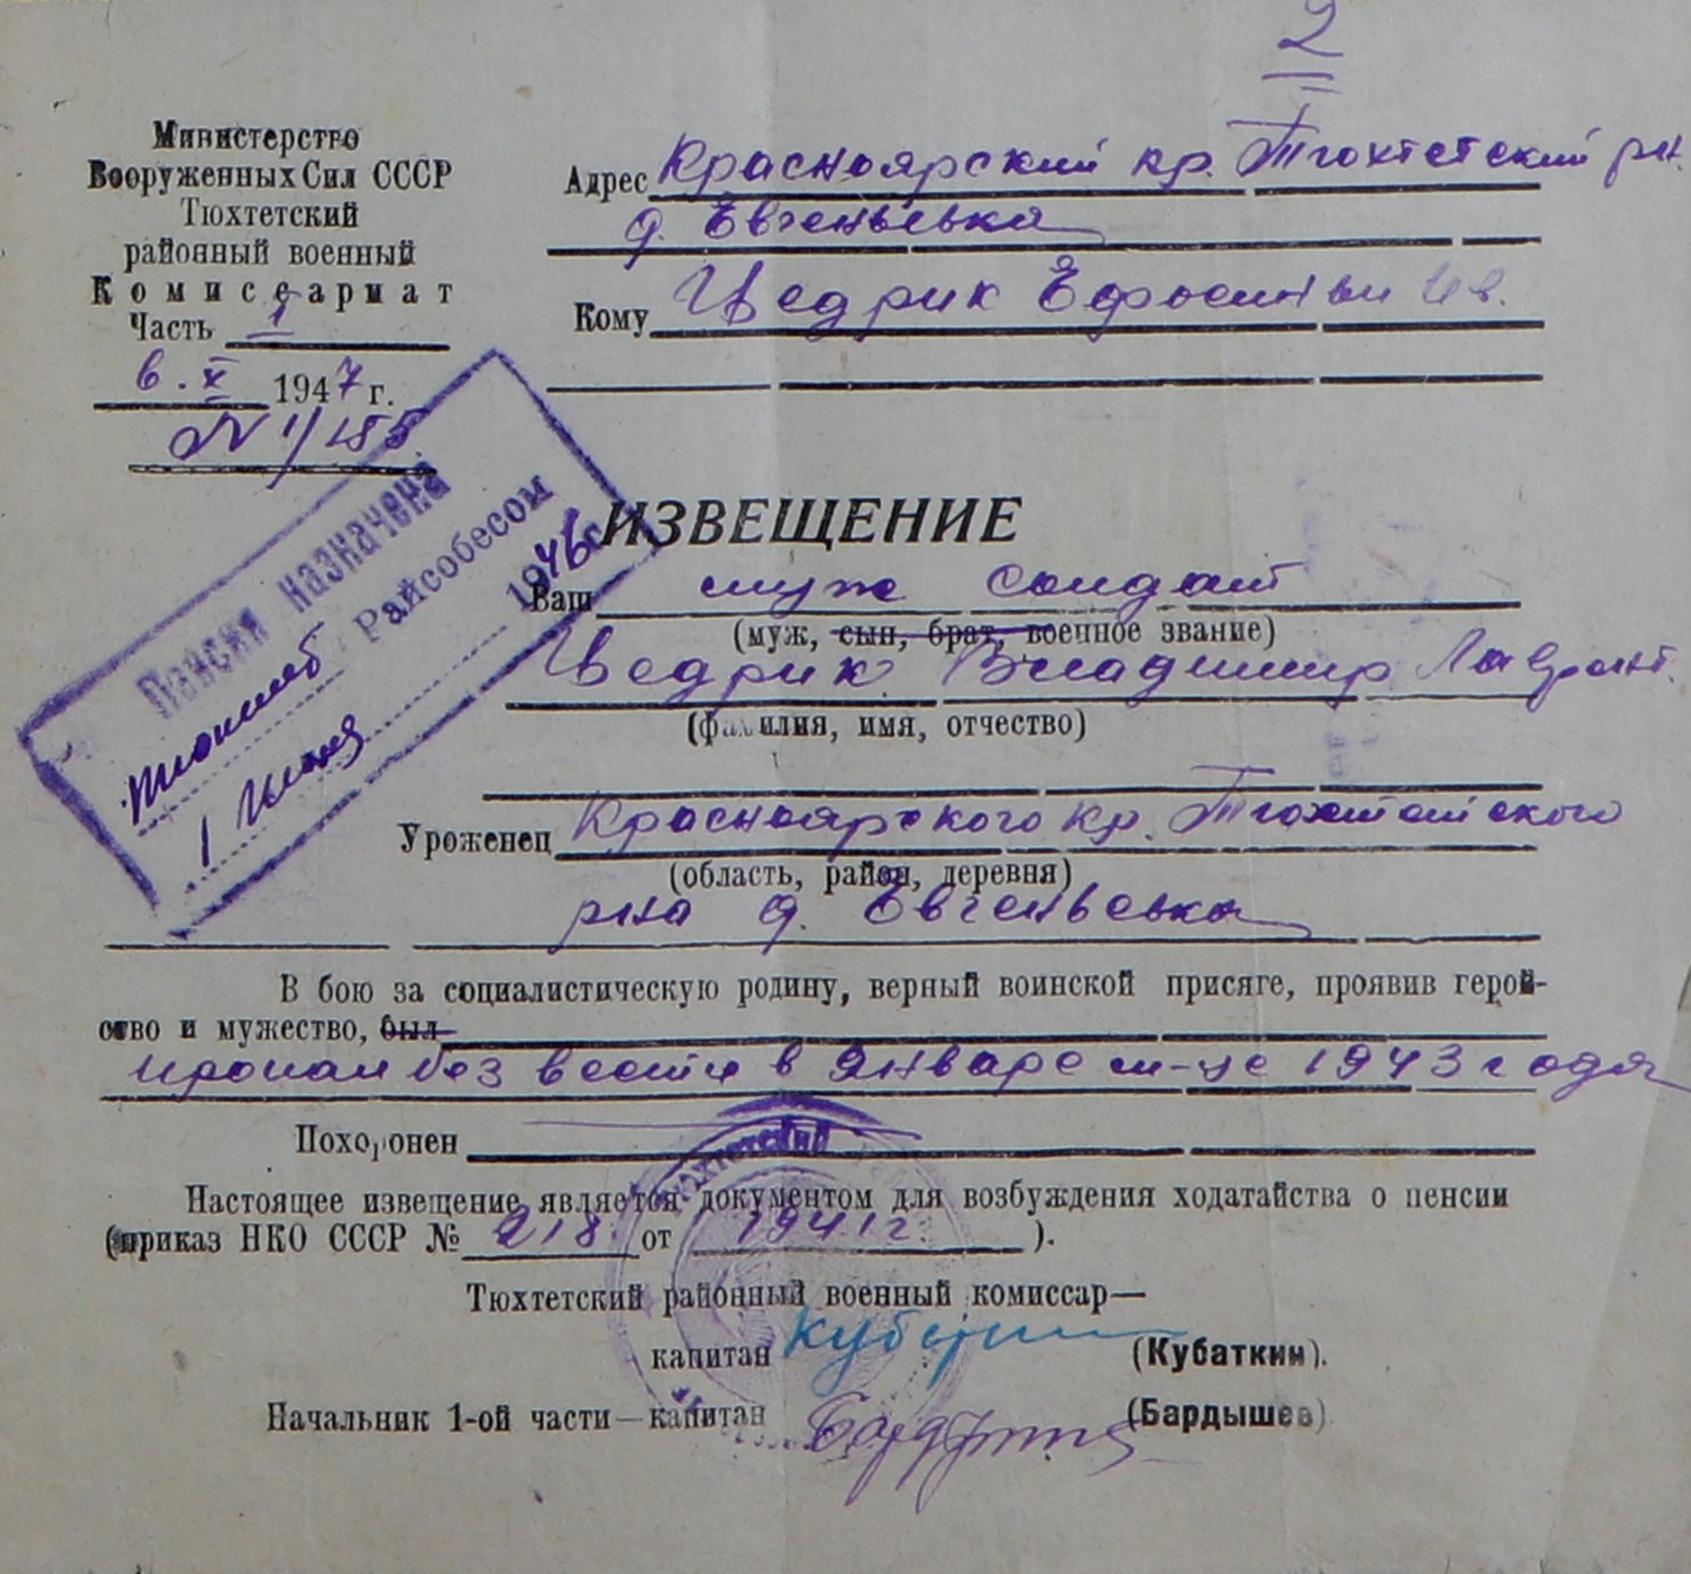 2
Министерство
Вооруженных Сил СССР
Тюхтетский
районный военный
Комиссариат
Часть 1
6.X 1947 г.
N 1/185
Адрес Красноярский кр. Тюхтетский рн.
д. Евгеньевка
Кому Цедрик Ефросиньи Ив.
Пенсия назначена
Райсобесом
1946г
ИЗВЕЩЕНИЕ
Ваш муж солдат
(муж, сын, брат, военное звание)
Цедрик Владимир Лаврент.
(фамилия, имя, отчество)
Уроженец Красноярского кр. Тюхтетского
(область, район, деревня)
рна д. Евгеньевка
В бою за социалистическую родину, верный воинской присяге, проявив герой-
ство и мужество, был
пропал без вести в Январе м-це 1943 года
Похоронен
Настоящее извещение является документом для возбуждения ходатайства о пенсии
(приказ НКО СССР № 218. от 1941г. ).
Тюхтетский районный военный комиссар—
капитан (Кубаткин).
Начальник 1-ой части—капитан (Бардышев)